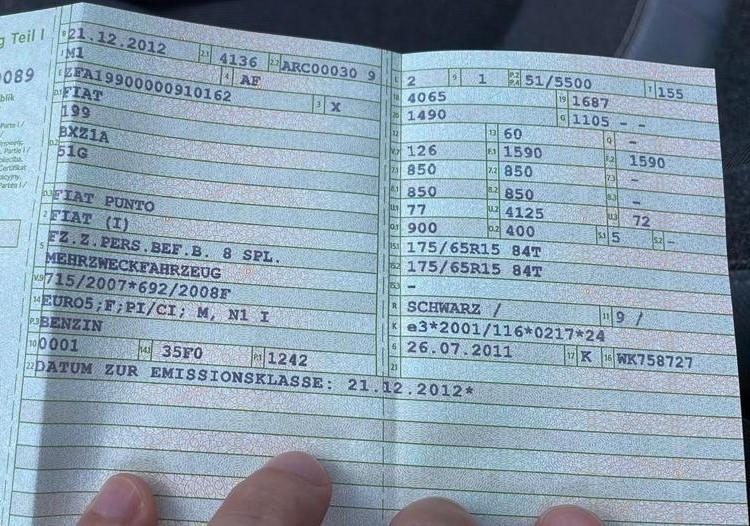 g Teil I
089
blik
B 21.12.2012 2.1 4136 2.2 ARC00030 9
J M1 4 AF
E ZFA19900000910162 3 X
D.1 FIAT
199
D.2 BXZ1A
51G
D.3 FIAT PUNTO
2 FIAT (I)
5 FZ.Z.PERS.BEF.B. 8 SPL.
MEHRZWECKFAHRZEUG
V.9 715/2007*692/2008F
14 EURO5;F;PI/CI; M, N1 I
P.3 BENZIN
10 0001 14.1 35F0 P.1 1242
22 DATUM ZUR EMISSIONSKLASSE: 21.12.2012*
L 2 9 1 P.2 P.4 51/5500 T 155
18 4065 19 1687
20 1490 G 1105 - -
12 13 60 Q -
V.7 126 F.1 1590 F.2 1590
7.1 850 7.2 850 7.3 -
8.1 850 8.2 850 8.3 -
U.1 77 U.2 4125 U.3 72
O.1 900 O.2 400 S.1 5 S.2 -
15.1 175/65R15 84T
15.2 175/65R15 84T
15.3 -
R SCHWARZ / 11 9 /
K e3*2001/116*0217*24
6 26.07.2011 17 K 16 WK758727
21